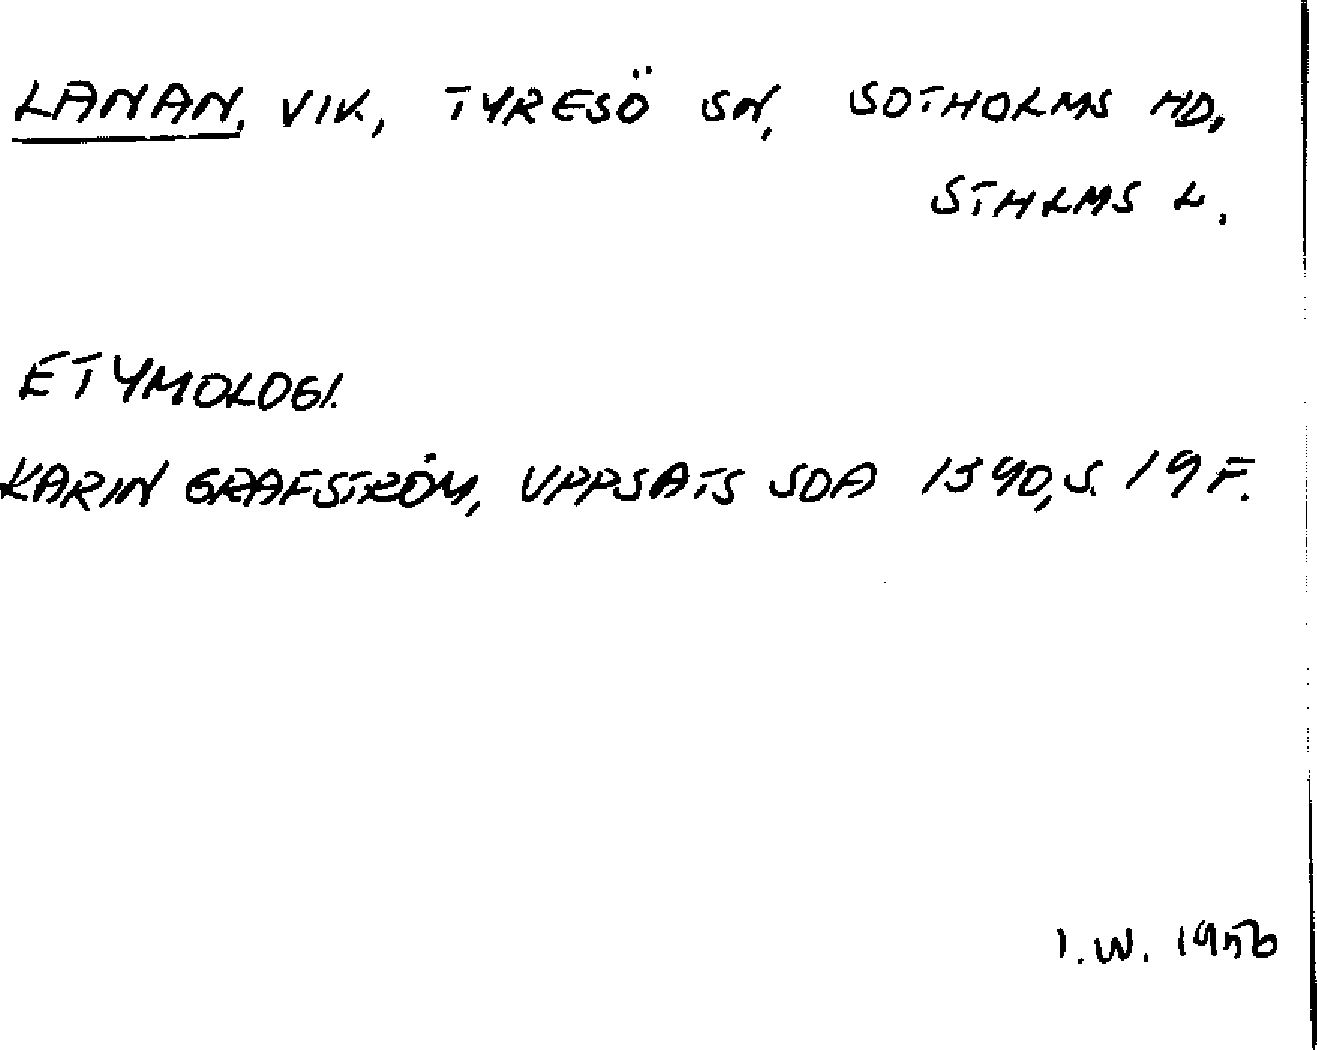 LANAN, VIK, TYRESÖ SN, SOTHOLMS HD,
STHLMS L.
ETYMOLOGI.
KARIN GRAFSTRÖM, UPPSATS SOA 1940, S. 19 F.
I.W. 1956